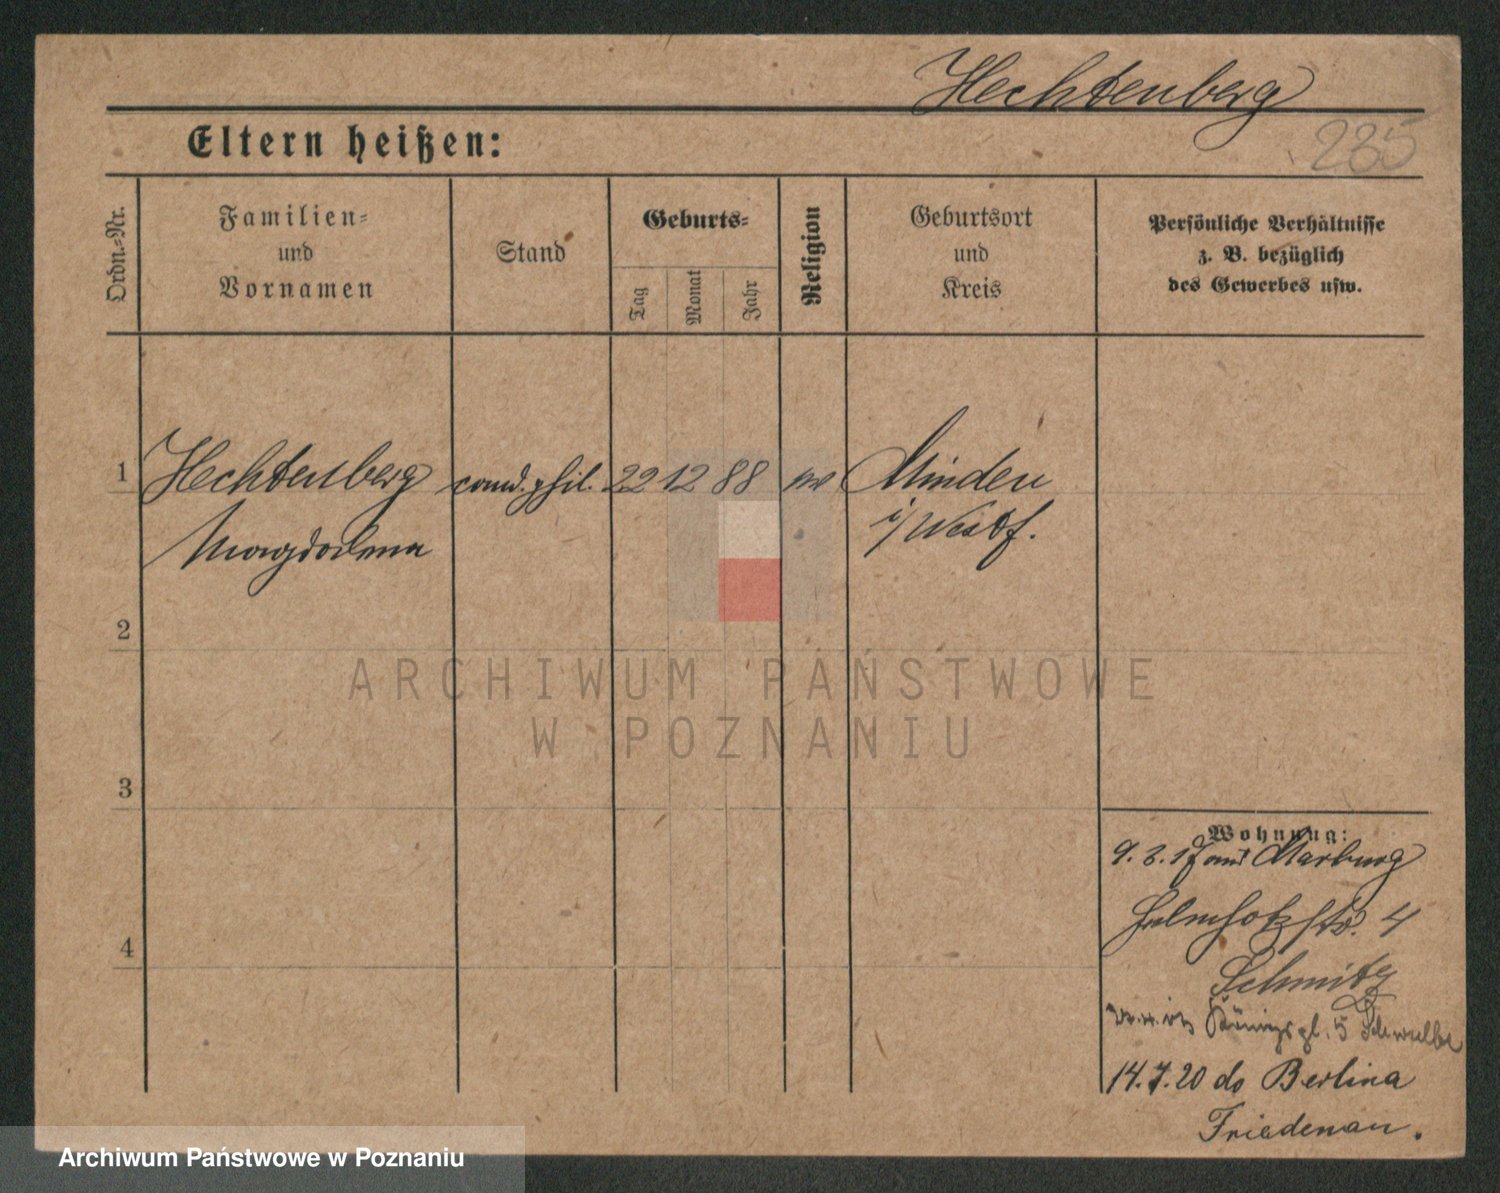 Hechtenberg
235
Eltern heißen:
Ordn.-Nr.
Familien-
und
Vornamen
Stand
Geburts-
Tag
Monat
Jahr
Religion
Geburtsort
und
Kreis
Persönliche Verhältnisse
z. B. bezüglich
des Gewerbes usw.
1 Hechtenberg cand. phil. 22 12 88 Minden
Magdalena i/Westf.
2
3
4
Wohnung:
9. 3. 17 aus Marburg
Helmholtzstr. 4
Schmitz
Königspl. 5 Schwalbe
14. 7. 20 do Berlin a
Friedenau.
ARCHIWUM PAŃSTWOWE
W POZNANIU
Archiwum Państwowe w Poznaniu